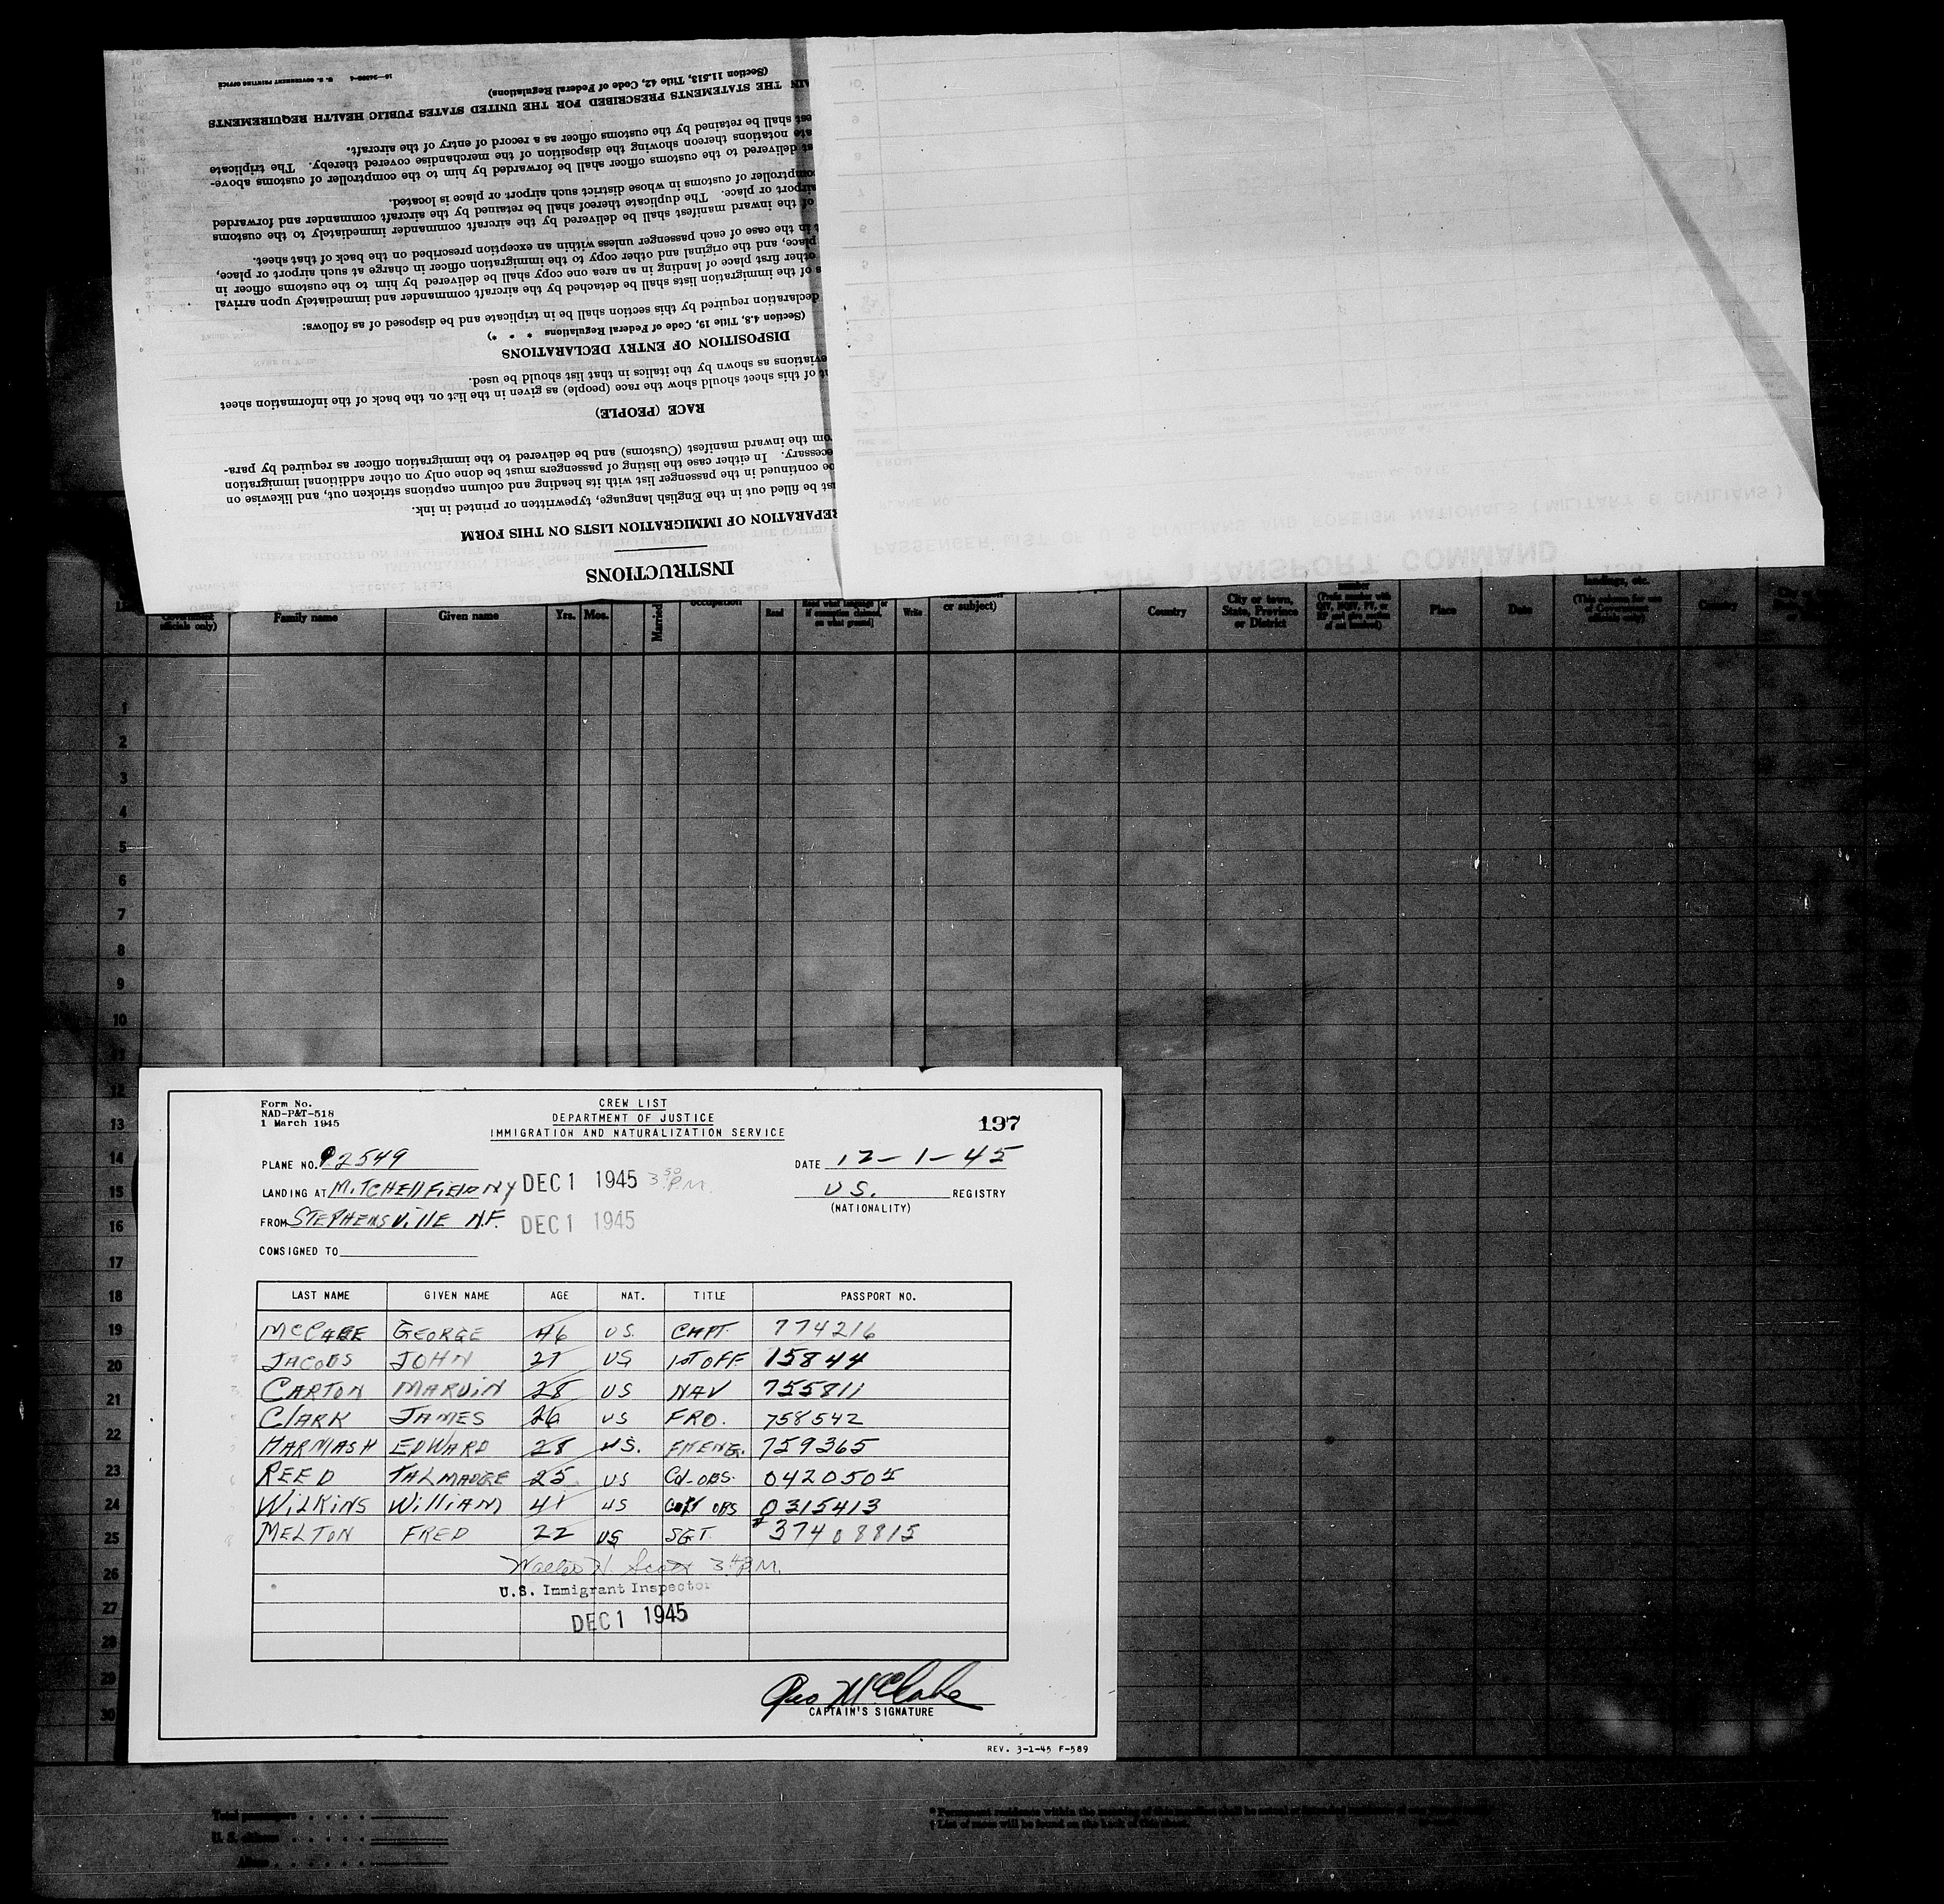 INSTRUCTIONS
REPARATION OF IMMIGRATION LISTS ON THIS FORM
st be filled out in the English language, typewritten or printed in ink.
be continued in the passenger list with its heading and column captions stricken out, and likewise on
ecessary. In either case the listing of passengers must be done only on other additional immigration
om the inward manifest (Customs) and be delivered to the immigration officer as required by para-
RACE (PEOPLE)
t of this sheet should show the race (people) as given in the list on the back of the information sheet
eviations as shown by the italics in that list should be used.
DISPOSITION OF ENTRY DECLARATIONS
(Section 4.8, Title 19, Code of Federal Regulations * * *)
declaration required by this section shall be in triplicate and be disposed of as follows:
s of the immigration lists shall be detached by the aircraft commander and immediately upon arrival
other first place of landing in an area one copy shall be delivered by him to the customs officer in
place, and the original and other copy to the immigration officer in charge at such airport or place,
t in the case of each passenger unless within an exception prescribed on the back of that sheet.
of the inward manifest shall be delivered by the aircraft commander immediately to the customs
airport or place. The duplicate thereof shall be retained by the aircraft commander and forwarded
omptroller of customs in whose district such airport or place is located.
st delivered to the customs officer shall be forwarded by him to the comptroller of customs above-
ate notations thereon showing the disposition of the merchandise covered thereby. The triplicate
est shall be retained by the customs officer as a record of entry of the aircraft.
AIN THE STATEMENTS PRESCRIBED FOR THE UNITED STATES PUBLIC HEALTH REQUIREMENTS
(Section 11.513, Title 42, Code of Federal Regulations)
U. S. GOVERNMENT PRINTING OFFICE
AIR TRANSPORT COMMAND
PASSENGER LIST OF U S CIVILIANS AND FOREIGN NATIONALS (MILITARY & CIVILIANS)
officials only) Family name Given name Yrs. Mos. Married occupation Read Write or subject) Country City or town, State, Province or District Place Date landings, etc. (This column for use of Government officials only) Country
1
2
3
4
5
6
7
8
9
10
11
12
13
14
15
16
17
18
19
20
21
22
23
24
25
26
27
28
29
30
Form No.
NAD-P&T-518
1 March 1945
CREW LIST
DEPARTMENT OF JUSTICE
IMMIGRATION AND NATURALIZATION SERVICE
197
PLANE NO. 92549 DATE 12-1-45
LANDING AT MITCHELL FIELD NY DEC 1 1945 3 50 P.M. U.S. REGISTRY
(NATIONALITY)
FROM STEPHENSVILLE N.F. DEC 1 1945
CONSIGNED TO
LAST NAME GIVEN NAME AGE NAT. TITLE PASSPORT NO.
MCCABE GEORGE 46 US. CAPT. 774216
JACOBS JOHN 27 US 1ST OFF 15844
CARTON MARVIN 28 US NAV 755811
CLARK JAMES 26 US FRO. 758542
HARMASH EDWARD 28 US. FHENG. 759365
REED TALMADGE 25 US Col-OBS. 0420505
WILKINS WILLIAM 41 US OBS 0315413
MELTON FRED 22 US SGT. #37408815
Walter H. Scott 3 P.M.
U.S. Immigrant Inspector
DEC 1 1945
Geo McCabe
CAPTAIN'S SIGNATURE
REV. 3-1-45 F-589
Total passengers
U. S. citizens
Aliens
† List of races will be found on the back of this sheet.